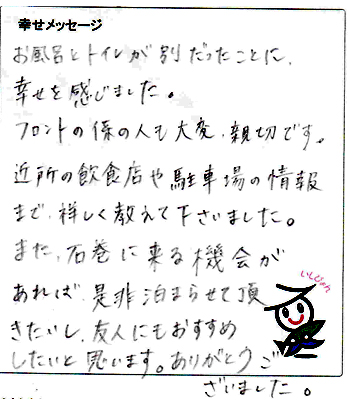 幸せメッセージ
お風呂とトイレが別だったことに、
幸せを感じました。
フロントの係の人も大変、親切です。
近所の飲食店や駐車場の情報
まで、詳しく教えて下さいました。
また、石巻に来る機会が
あれば、是非泊まらせて頂
きたいし、友人にもおすすめ
したいと思います。ありがとうご
ざいました。